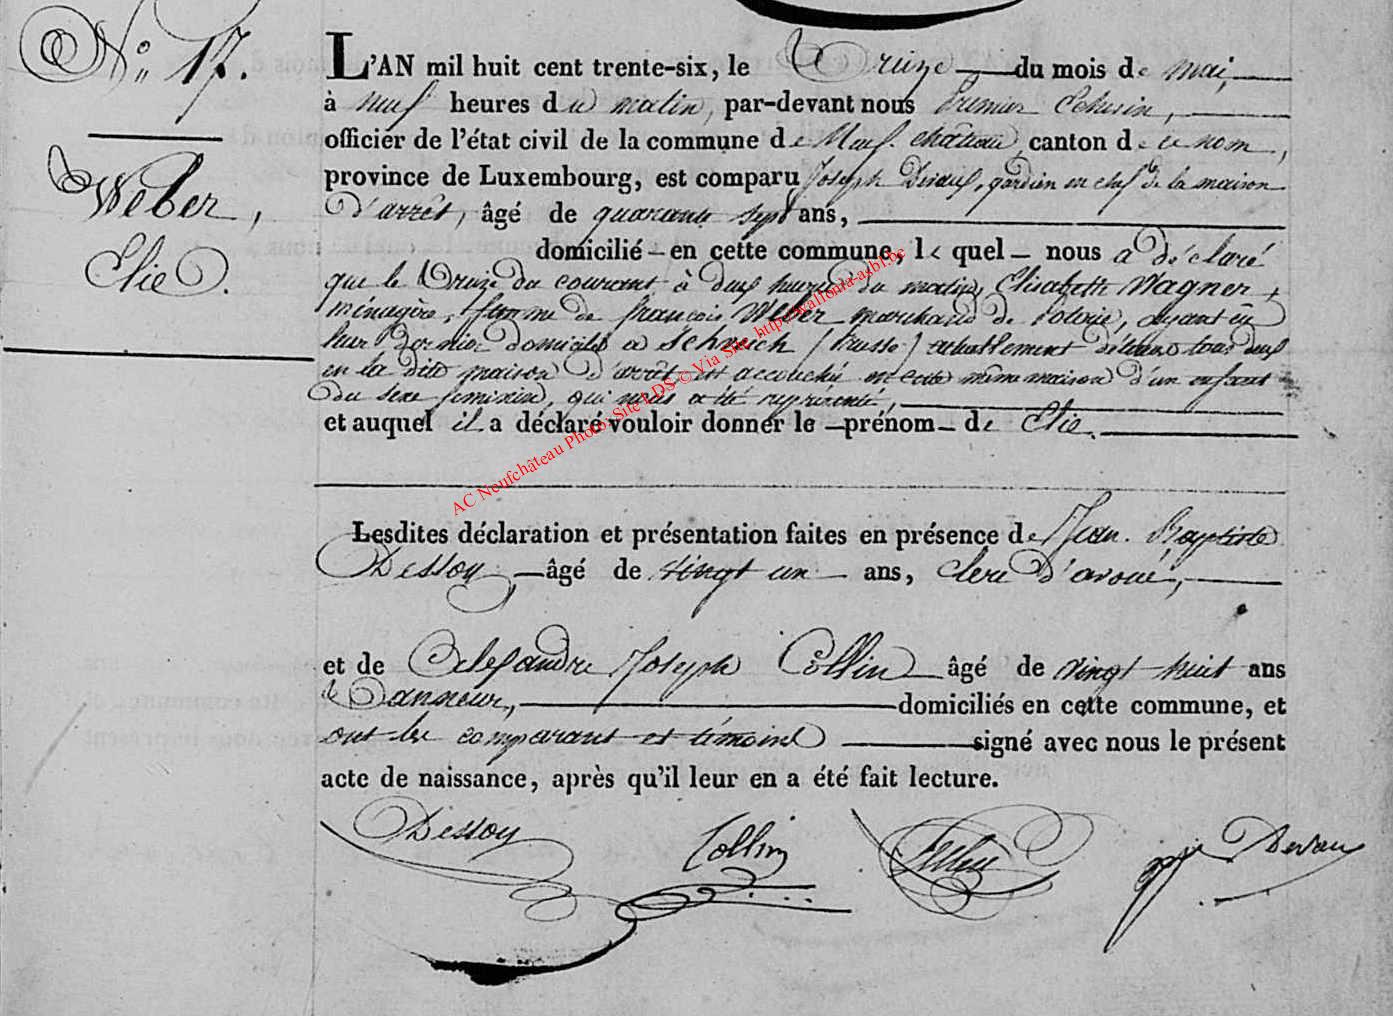 N° 17.
Weber,
Elie.
L'AN mil huit cent trente-six, le treize du mois de mai,
à neuf heures du matin, par-devant nous Premier Echevin,
officier de l'état civil de la commune de Neufchâteau, canton de ce nom,
province de Luxembourg, est comparu Joseph Devaux, gardien en chef de la maison
d'arrêt, âgé de quarante sept ans,
domicilié en cette commune, lequel nous a déclaré
que le treize du courant à deux heures du matin, Elisabeth Wagner,
ménagère, femme de françois Weber marchand de Poterie, ayant eu
leur dernier domicile à Schweich (Prusse) actuellement détenus tous deux
en la dite maison d'arrêt est accouchée en cette même maison d'un enfant
du sexe féminin, qui nous a été représenté,
et auquel il a déclaré vouloir donner le prénom de Elie.
Lesdites déclaration et présentation faites en présence de Jean Baptiste
Dessoy, âgé de vingt un ans, clerc d'avoué,
et de Alexandre Joseph Collin âgé de vingt huit ans
Tanneur, domiciliés en cette commune, et
ont les comparant et témoins signé avec nous le présent
acte de naissance, après qu'il leur en a été fait lecture.
Dessoy Collin Devaux
AC Neufchâteau Photo: Site LDS © Via Site http://wallonia-asbl.be